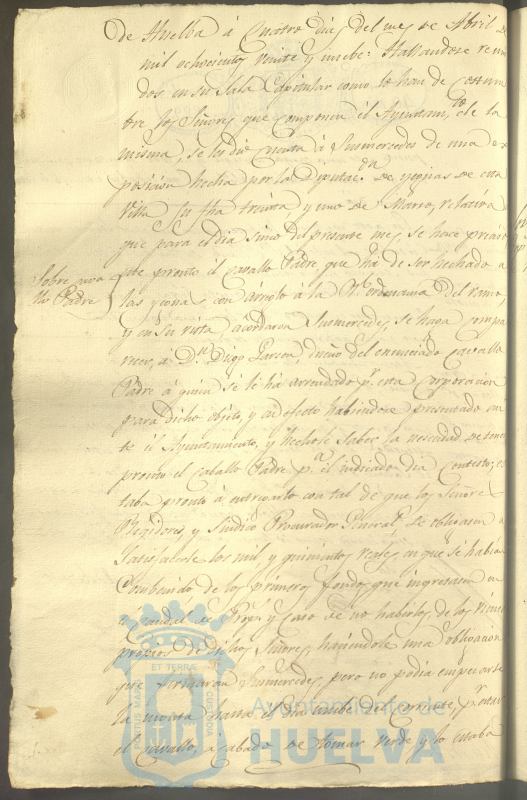 de Huelva á Cuatro dias del mes de Abril de
mil ochocientos veinte y nuebe: Hallandose reuni
dos en su Sala Capitular como lo han de costum
bre los Señores que componen el Ayuntamto de la
misma, se les dio cuenta á Sumercedes de una ex
posicion hecha por la Diputacn de yeguas de esta
Villa su fha treinta y uno de Marzo, relativa
que para el dia sinco del presente mes, se hace preciso
este pronto el cavallo Padre que há de ser hechado a
las yeguas con arreglo á la Rl ordenanza del ramo,
y en su vista acordaron Sumercedes, se haga compa
recer, a Dn Diego Garzon, dueño del enunciado cavallo
Padre á quien se le há arrendado pr esta Corporacion
para dicho objeto, y al efecto habiendose presentado an
te el Ayuntamiento, y hechole saber la nescidad de tener
pronto el caballo Padre pa el indicado dia contesto; es
taba pronto á entregarlo con tal de que los Señores
Regidores, y Sindico Procurador General, se obligasen a
satisfacerle los mil y quinientos reales en que se habia
Combenido de los primeros fondos que ingresasen en
el caudal de Propos y caso de no haberlos, de los vienes
propios de dichos Señores, haciendole una obligacion
que firmaran Sumercedes, pero no podia empesarse
la monta hasta el dia nuebe del corriente, pr estar
el Cavallo, acabado de tomar verde y lo estaba
Sobre cava
llo Padre
ET TERRÆ
PORTUS MARIS
CUSTODIA
Ayuntamiento de
HUELVA